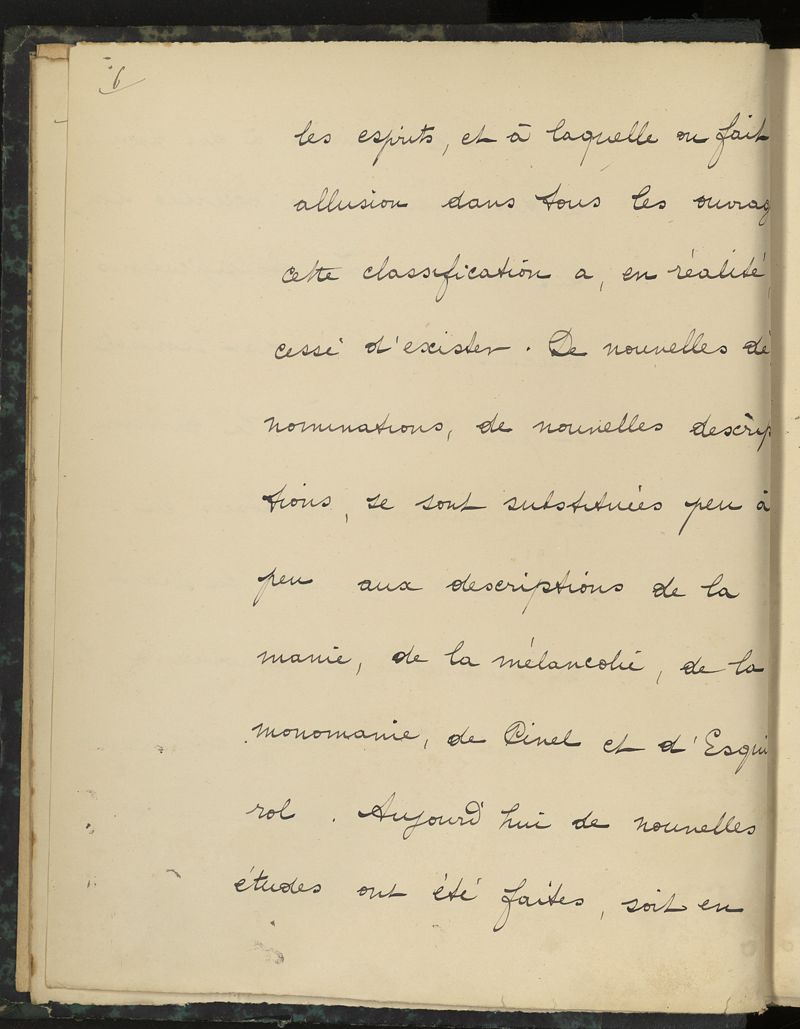 6
les esprits, et à laquelle on fait
allusion dans tous les ouvrag
cette classification a, en réalité,
cessé d'exister. De nouvelles dé
nominations, de nouvelles descrip
tions, se sont substituées peu à
peu aux descriptions de la
manie, de la mélancolie, de la
monomanie, de Pinel et d'Esqui
rol. Aujourd'hui de nouvelles
études ont été faites, soit en